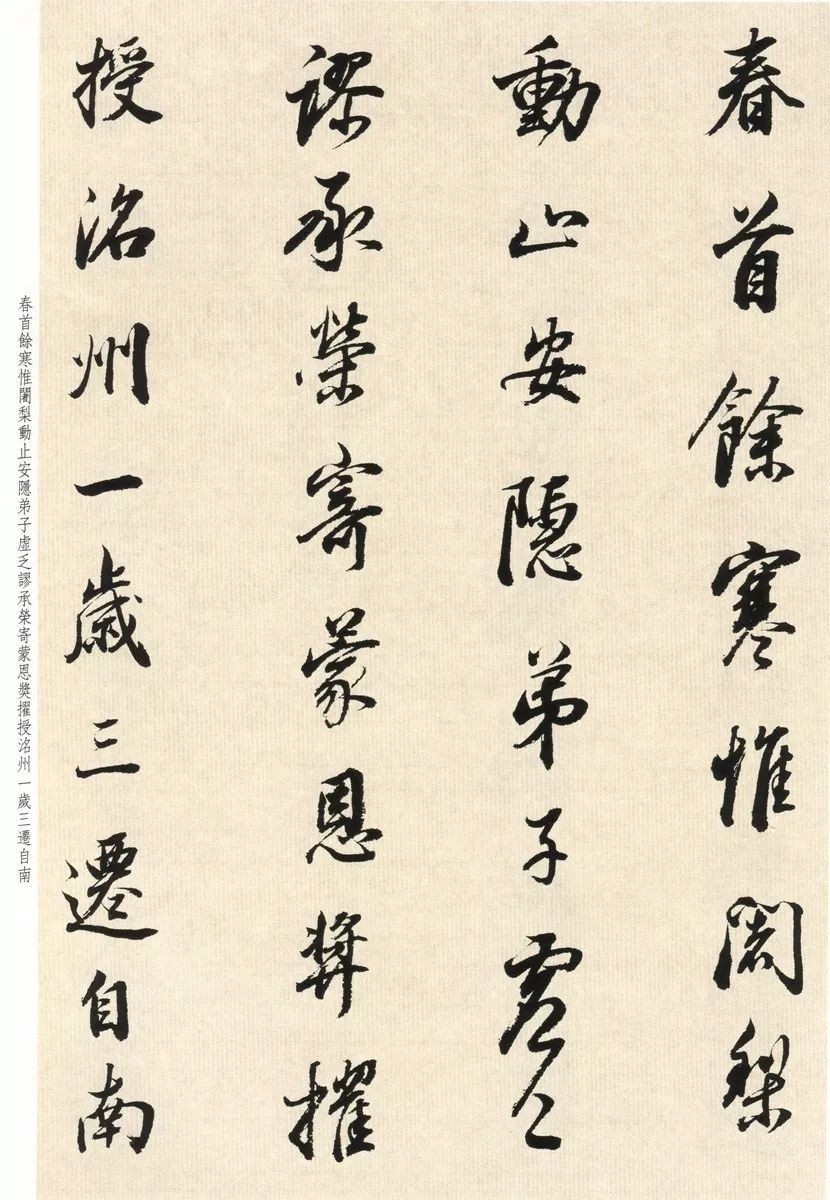 春首餘寒惟闍梨
動止安隱弟子虛乏
謬承榮寄蒙恩獎擢
授洺州一歲三遷自南
春首餘寒惟闍梨動止安隱弟子虛乏謬承榮寄蒙恩獎擢授洺州一歲三遷自南